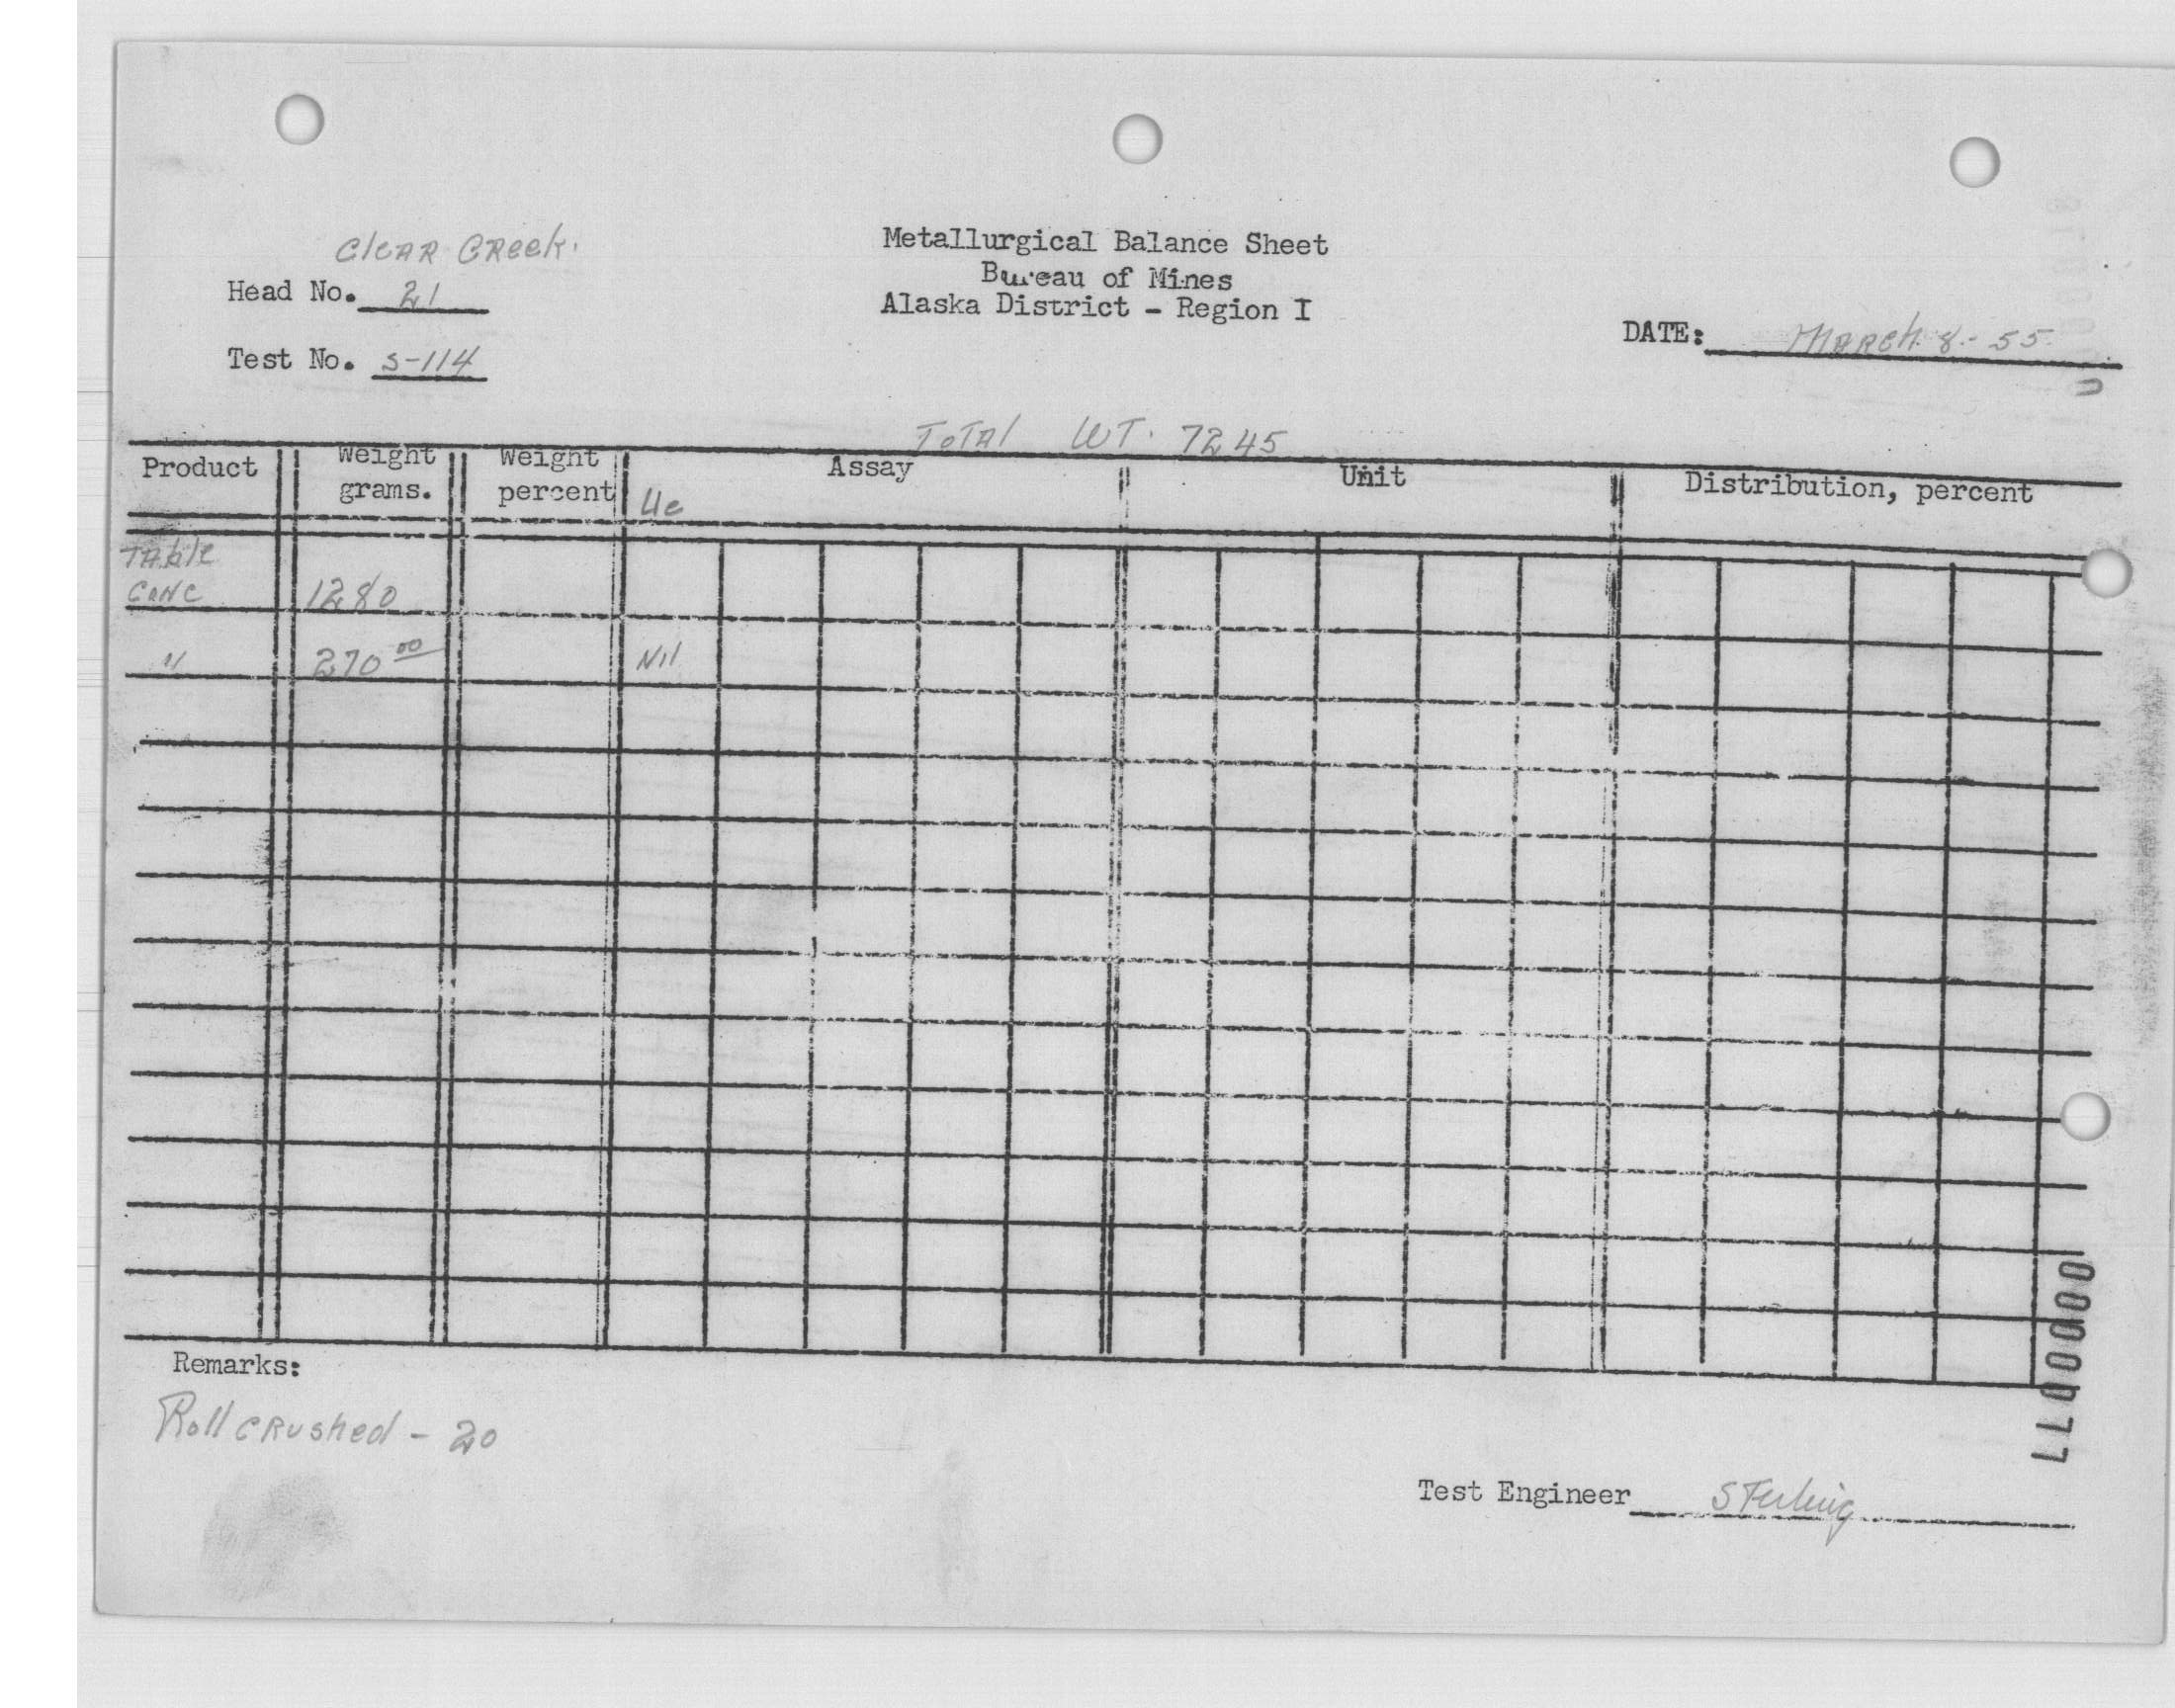 Clear Creek.
Metallurgical Balance Sheet
Bureau of Mines
Alaska District - Region I
Head No. 21
Test No. S-114
DATE: March 8 - 55
Total WT. 7245
Product
Weight grams.
Weight percent
Assay
Unit
Distribution, percent
Ue
Table
Conc 1280
" 270 00 Nil
Remarks:
Roll crushed - 20
Test Engineer Sterling